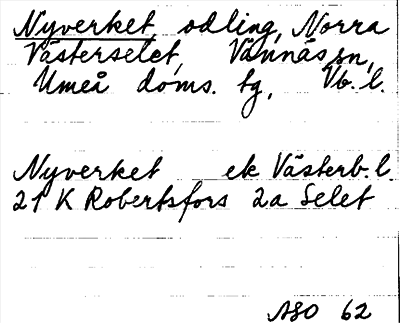 Nyverket odling, Norra
Västerselet, Vännäs sn,
Umeå doms. tg, Vb. l.
Nyverket ek Västerb. l.
21 K Robertsfors 2a Selet
ASO 62